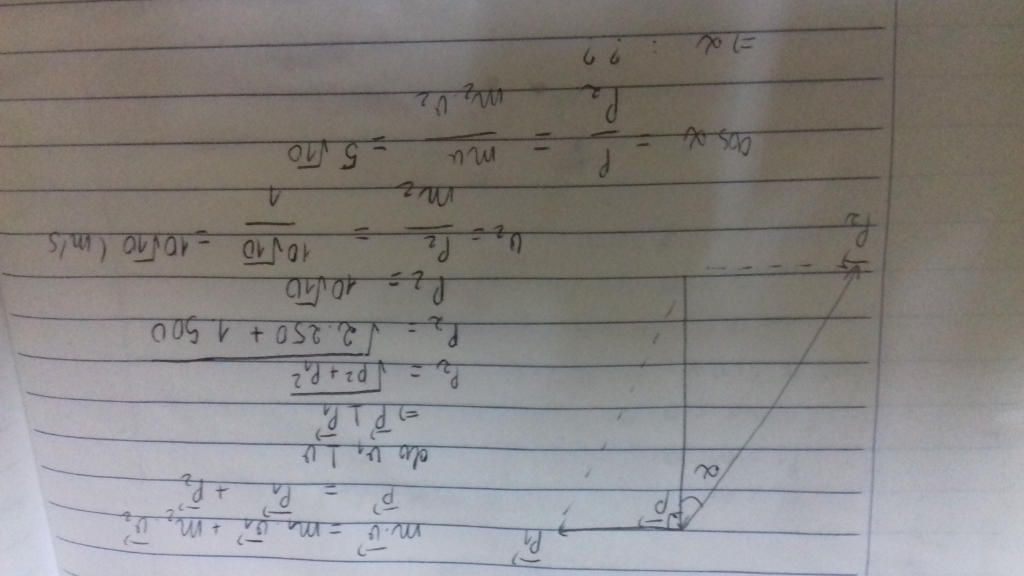 m.v⃗ = m₁.v⃗₁ + m₂.v⃗₂
p⃗ = p⃗₁ + p⃗₂
do v₁ ⊥ v
=> p⃗ ⊥ p⃗₁
P₂ = √(p² + p₁²)
P₂ = √(2.250 + 1.500)
P₂ = 10√10
v₂ = P₂/m₂ = 10√10/1 = 10√10 (m/s
cos α = P/P₂ = mv/m₂.v₂ = 5√10
=> α : ??
p⃗₁
p⃗
α
p⃗₂